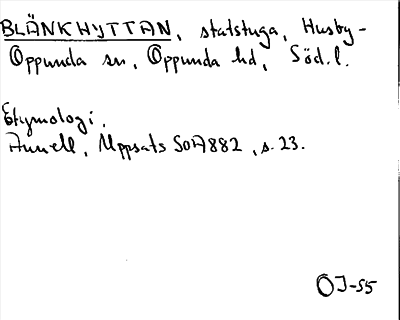 BLÄNKHYTTAN, statstuga, Husby-
Oppunda sn, Oppunda hd, Söd. l.
Etymologi.
Annell, Uppsats SOA882, s. 23.
OJ-55